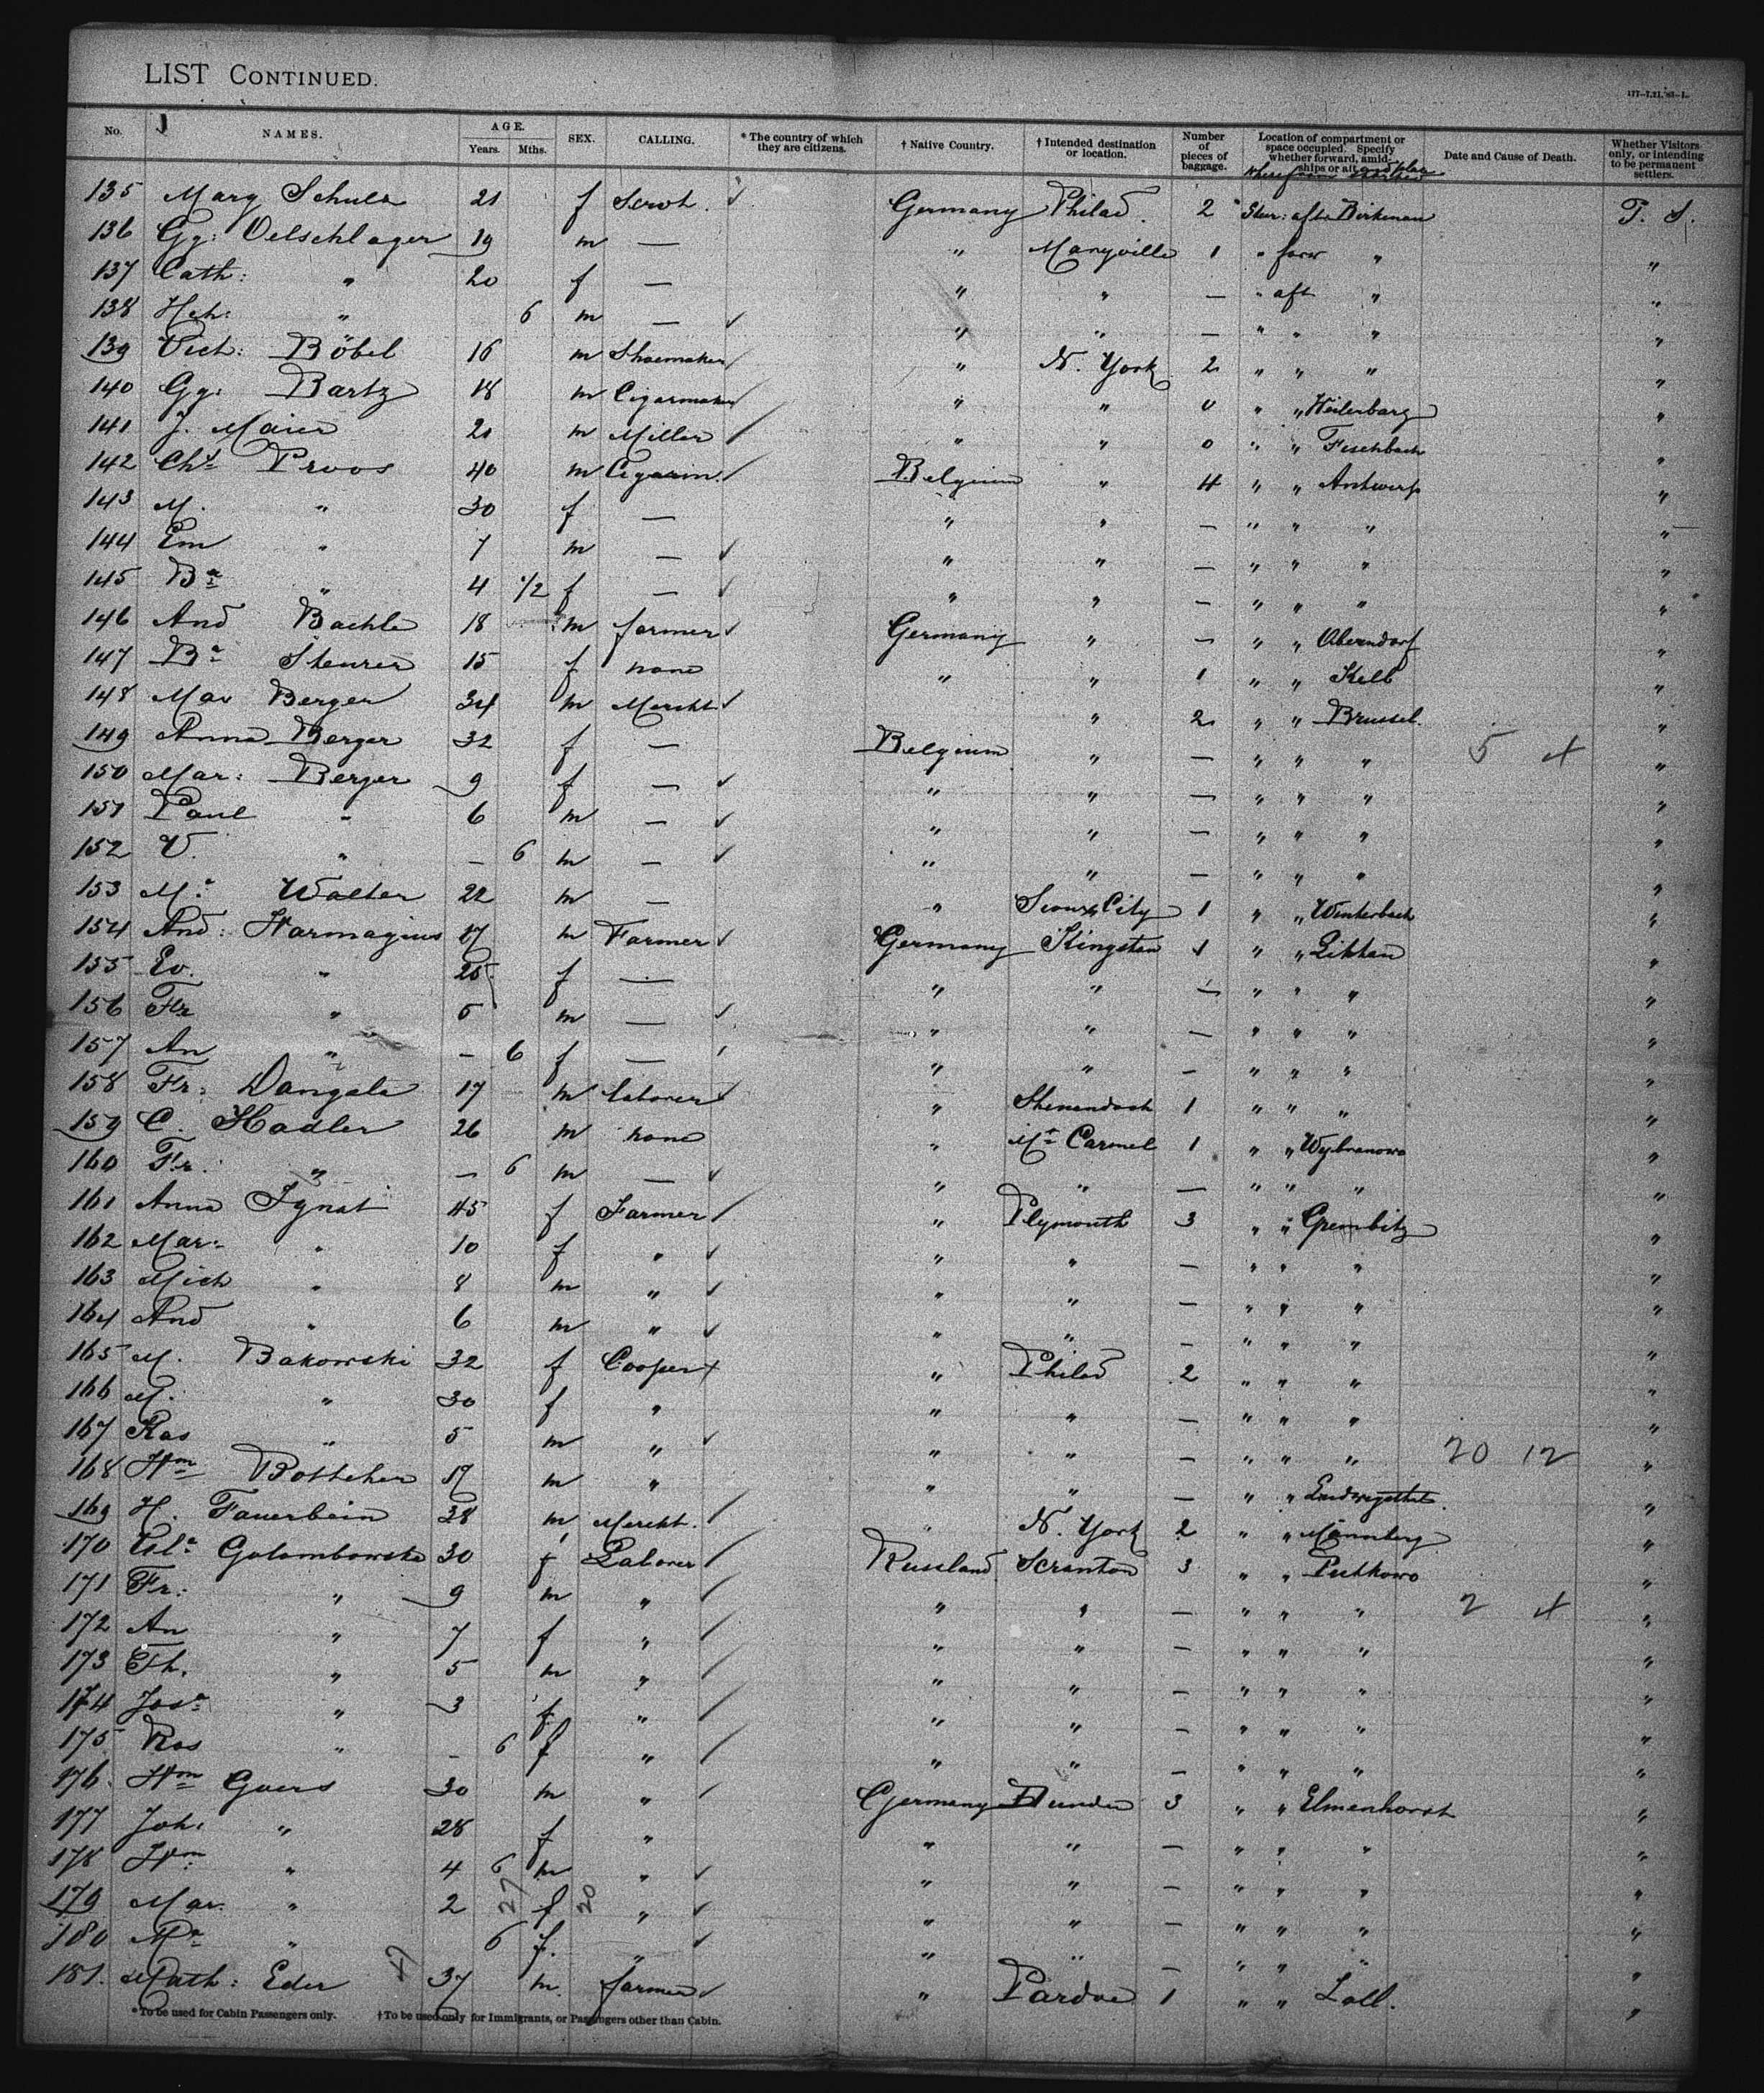 LIST CONTINUED.
No. NAMES. AGE. Years. Mths. SEX. CALLING. * The country of which they are citizens. † Native Country. † Intended destination or location. Number of pieces of baggage. Location of compartment or space occupied. Specify whether forward, amidships or aft Date and Cause of Death. Whether Visitors only, or intending to be permanent settlers.
135 Marg Schulz 21 f Servt. ✓ Germany Philad. 2 " Ster: aft Birkenau P. S.
136 Gg: Oelschlager 19 m — " Maryville 1 " forw " "
137 Cath: " 20 f — " " — " aft " "
138 Hch: " 6 m — ✓ " " — " " " "
139 Vict: Böbel 16 m Shoemaker / " N. York 2 " " " "
140 Gg: Bartz 18 m Cigarmaker / " " 0 " " "
141 J. Maier 21 m Miller / " " 0 " " Fischbach "
142 Chs Proos 40 m Cigarm. / Belgium " 4 " " Antwerp "
143 M. " 30 f — " " — " " " "
144 Em " 7 m — ✓ " " — " " " "
145 Ba " 4 1/2 f — ✓ " " — " " " "
146 And Bachle 18 m farmer ✓ Germany " — " " Oberndorf "
147 Ba Steurer 15 f none " " 1 " " Kelb "
148 Max Berger 34 m Mercht ✓ " 2 " " Brussel. "
149 Anna Berger 32 f — Belgium " — " " " 5 4 "
150 Mar: Berger 9 f — ✓ " " — " " " "
151 Paul " 6 m — ✓ " " — " " " "
152 V. " — 6 m — ✓ " " — " " " "
153 Ma Walter 22 m — " Sioux City 1 " " Winterbach "
154 And: Harmagius 17 m Farmer ✓ Germany Kingston 1 " " "
155 Ev. " 25 f — " " — " " " "
156 Fr " 5 m — ✓ " " — " " " "
157 An " — 6 f — " " — " " " "
158 Fr: Dangela 17 m laborer ✓ " Shenandoah 1 " " " "
159 C. Hadler 26 m none " Mt Carmel 1 " " Wybranowo "
160 Fr. " — 6 m — ✓ " " — " " " "
161 Anna Ignat 45 f Farmer / " Plymouth 3 " " Grembitz "
162 Mar: " 10 f " ✓ " " — " " " "
163 Mich " 8 m " ✓ " " — " " " "
164 And " 6 m " ✓ " " — " " " "
165 M. Bakowski 32 f Cooper " Philad 2 " " " "
166 M. " 30 f " " " — " " " "
167 Kas " 5 m " ✓ " " — " " " 20 12 "
168 Wm Bottcher 17 m " " " — " " "
169 H. Fauerbein 38 m Mercht. / " N. York 2 " " "
170 Golombowska 30 f Laborer / Russland Scranton 3 " " "
171 Fr: " 9 m " / " " — " " " 2 4 "
172 An " 7 f " / " " — " " " "
173 Th. " 5 m " / " " — " " " "
174 Josa " 3 f " / " " — " " " "
175 Ros " — 6 f " / " " — " " " "
176 Wm Goers 30 m " / Germany 3 " " Elmenhorst "
177 Joh: " 28 f " " " — " " " "
178 Wm " 4 6 m " ✓ " " — " " " "
179 Mar. " 2 f " ✓ " " — " " " "
27 20
180 Ma " 6 f. " ✓ " " — " " " "
181. Math: Eder 37 m. farmer ✓ " Pardoe 1 " " Loll. "
* To be used for Cabin Passengers only. † To be used only for Immigrants, or Passengers other than Cabin.